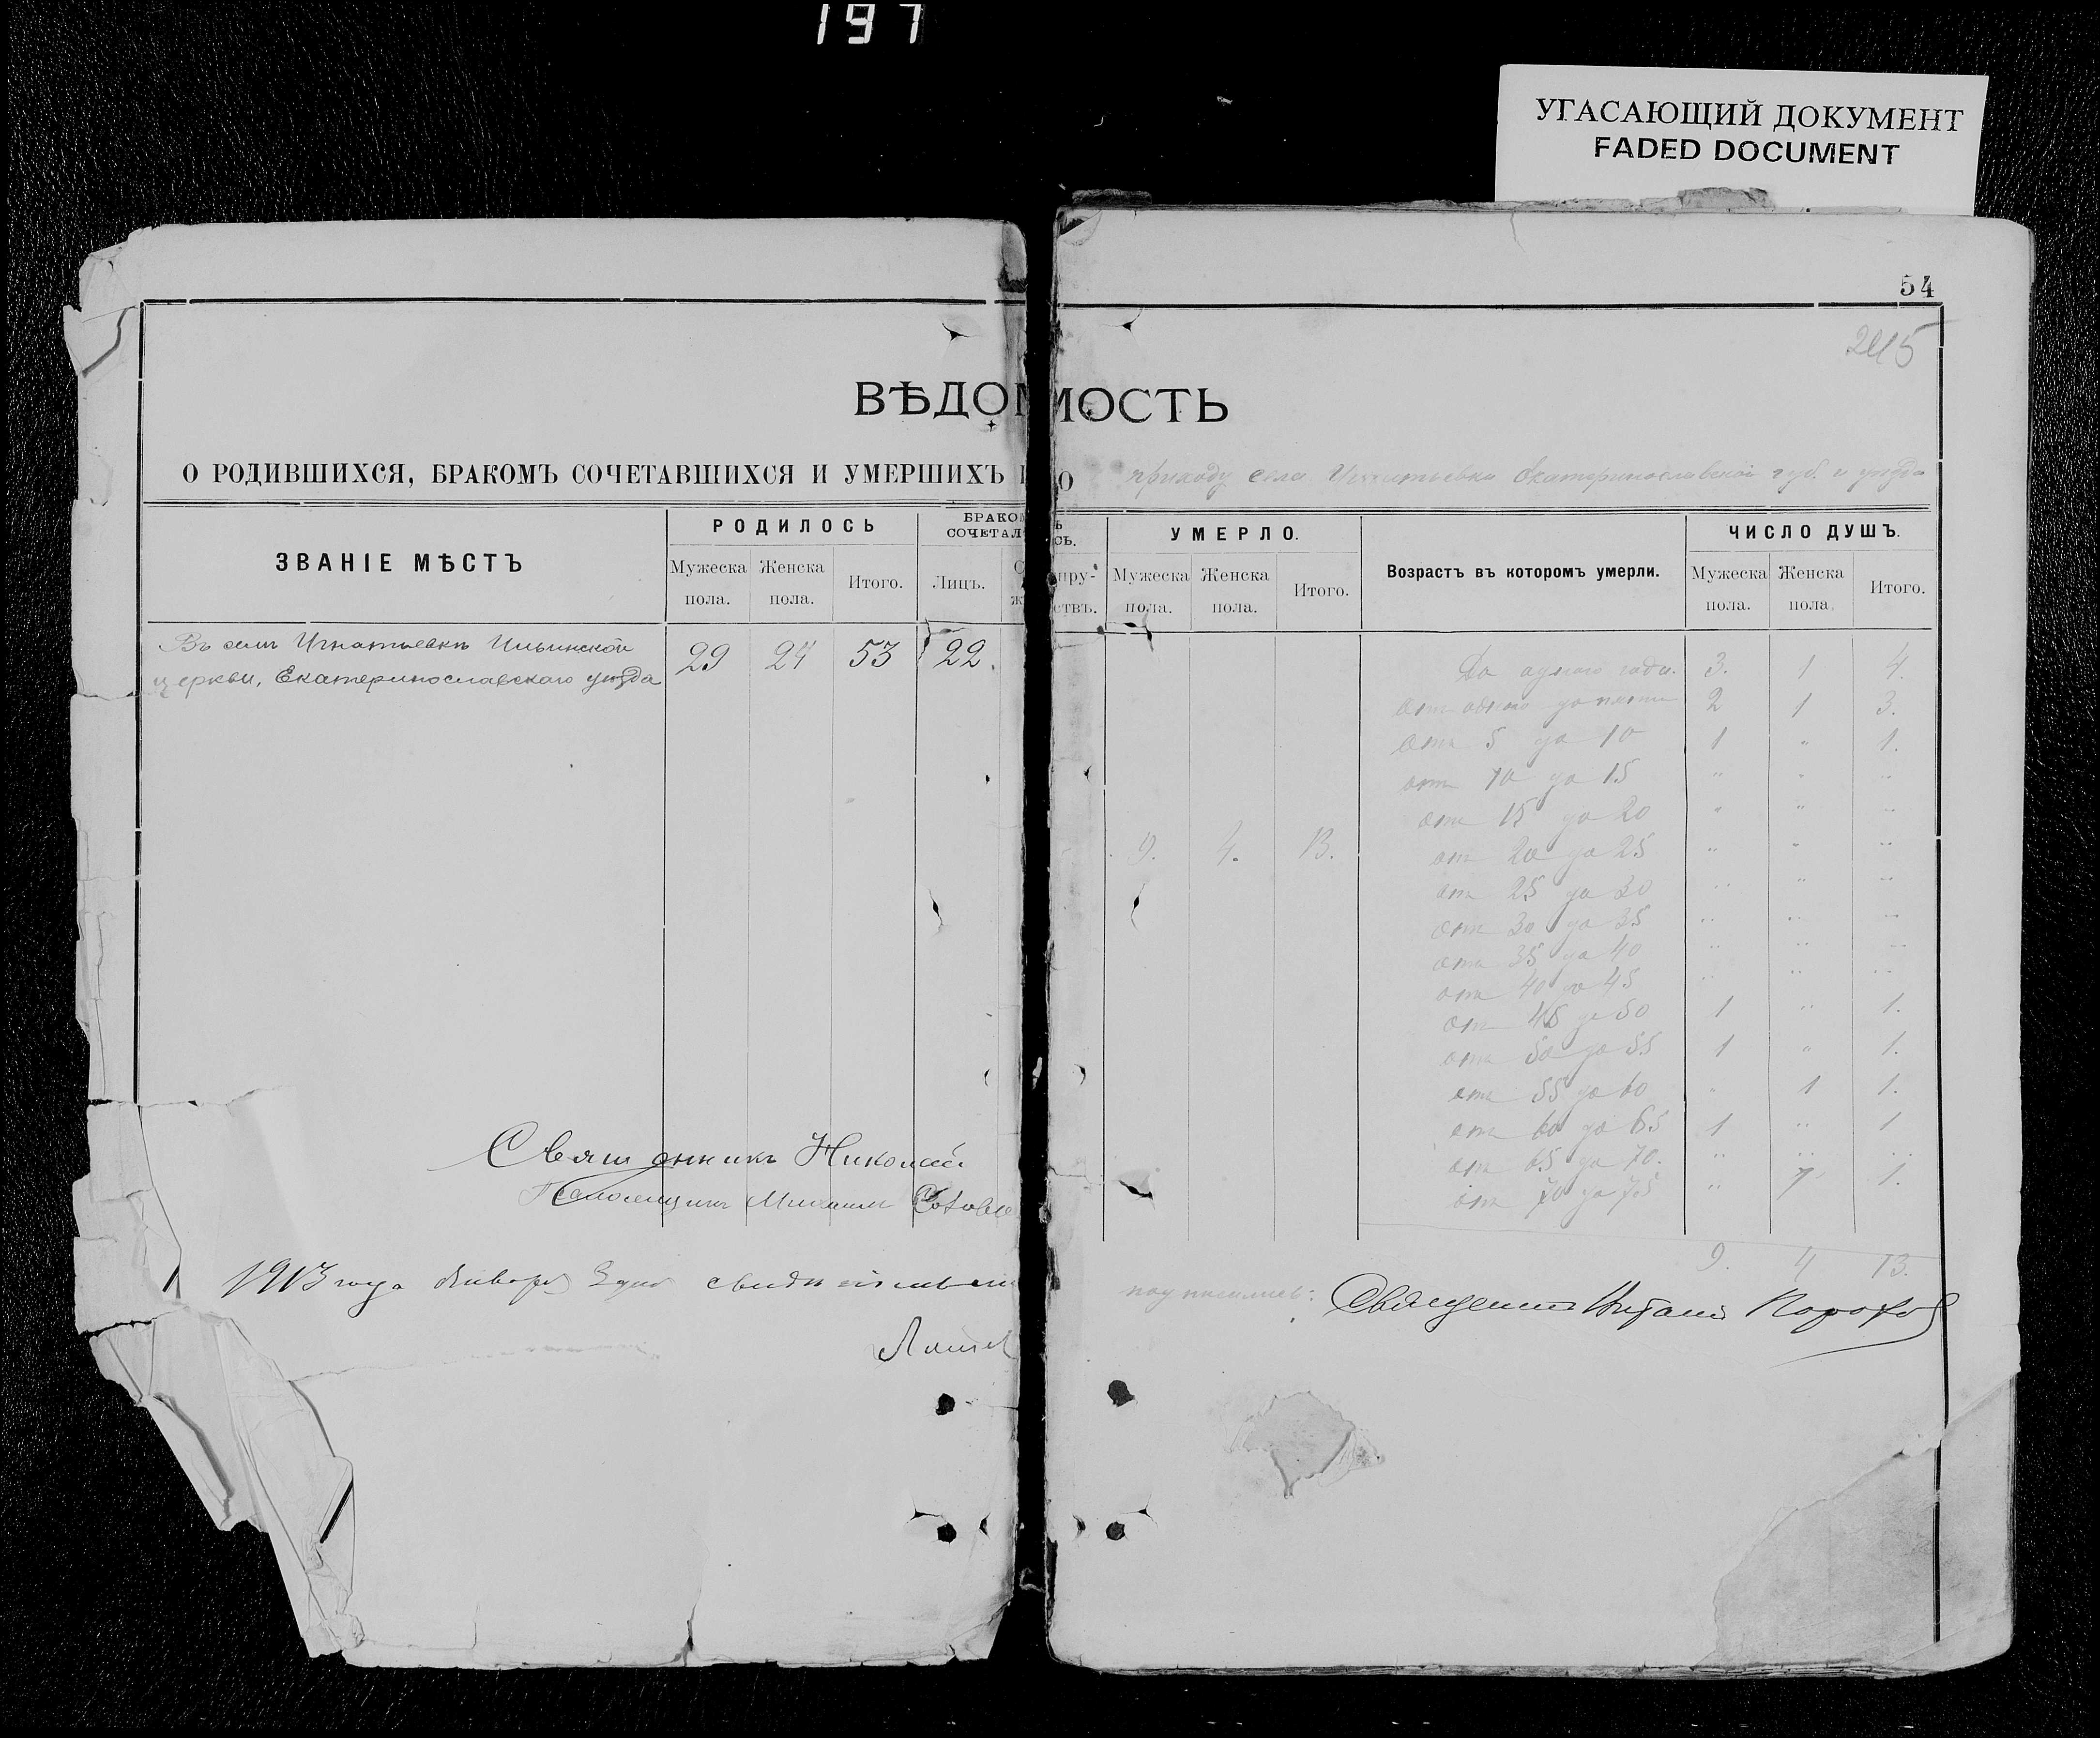 197
УГАСАЮЩИЙ ДОКУМЕНТ
FADED DOCUMENT
54
245
ВѢДОМОСТЬ
О РОДИВШИХСЯ, БРАКОМЪ СОЧЕТАВШИХСЯ И УМЕРШИХЪ ПО приходу села Игнатьевки Екатеринославской губ. и уѣзда
ЗВАНІЕ МѢСТЪ
РОДИЛОСЬ
Мужеска пола.
Женска пола.
Итого.
БРАКОМЪ СОЧЕТАЛОСЬ.
Лицъ.
УМЕРЛО.
Мужеска пола.
Женска пола.
Итого.
Возрастъ въ которомъ умерли.
ЧИСЛО ДУШЪ.
Мужеска пола.
Женска пола.
Итого.
Въ селѣ Игнатьевкѣ Ильинской 29 24 53 22.
церкви, Екатеринославскаго уѣзда
До одного года. 3. 1 4.
Отъ одного до пяти 2 1 3.
Отъ 5 до 10 1 " 1.
отъ 10 до 15 " " "
отъ 15 до 20 " " "
9. 4. 13. отъ 20 до 25 " " "
отъ 25 до 30 " " "
отъ 30 до 35 " " "
отъ 35 до 40 " " "
отъ 40 до 45 " " "
отъ 45 до 50 1 " 1.
отъ 50 до 55 1 " 1.
отъ 55 до 60 " 1 1.
отъ 60 до 65 1 " 1
отъ 65 до 70. " " "
отъ 70 до 75 " 1 1.
9. 4 13.
Священникъ Николай
Псаломщикъ Михаилъ
1913 года Января 3 дня
подписалъ: Священникъ